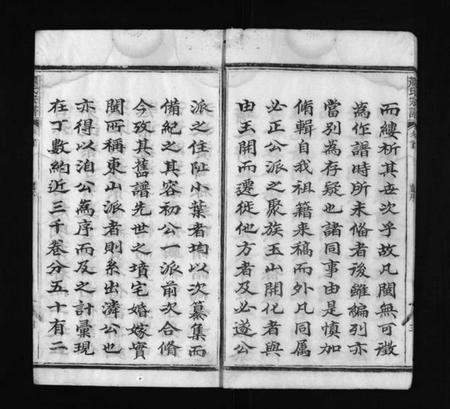 而縷析其世次乎故凡闕無可徵
為作譜時所未備者後雖編列亦
當別為存疑也諸同事由是慎加
脩輯自我祖籍來稿而外凡同屬
必正公派之聚族玉山開化者與
由玉開而遷徙他方者及必遂公
派之住阯小葉者均以次纂集而
備紀之其容初公一派前次合脩
今攷其舊譜先世之墳宅婚嫁實
闕所稱東山派者則系出濟公也
亦得以洎公為序而及之計彙現
在丁數約近三千卷分五十有二